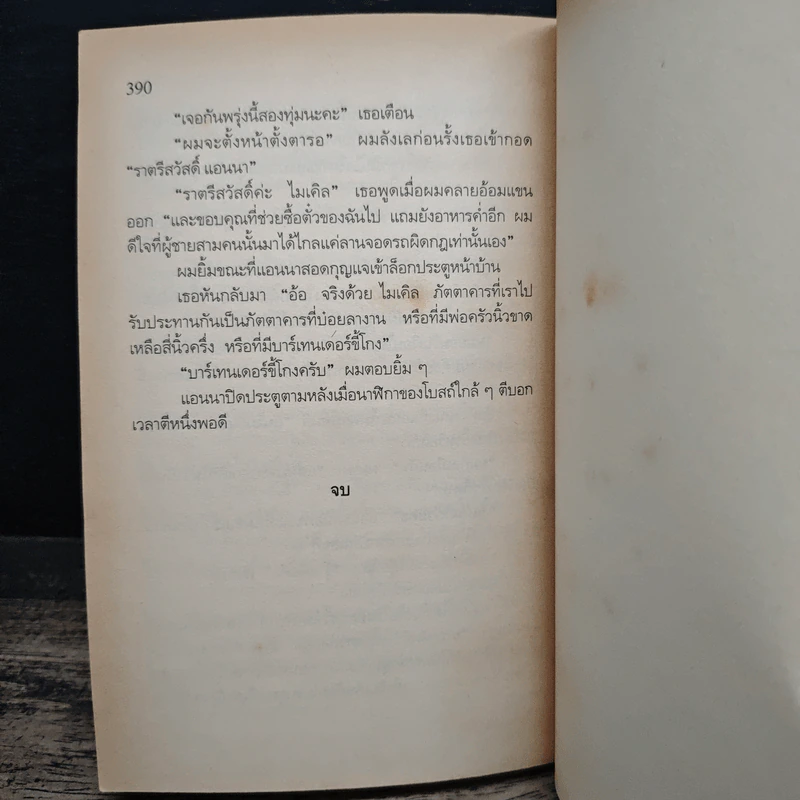 390
“เจอกันพรุ่งนี้สองทุ่มนะคะ” เธอเตือน
“ผมจะตั้งหน้าตั้งตารอ” ผมลังเลก่อนรั้งเธอเข้ากอด
“ราตรีสวัสดิ์ แอนนา”
“ราตรีสวัสดิ์ค่ะ ไมเคิล” เธอพูดเมื่อผมคลายอ้อมแขน
ออก “และขอบคุณที่ช่วยซื้อตั๋วของฉันไป แถมยังอาหารค่ำอีก ผม
ดีใจที่ผู้ชายสามคนนั้นมาได้ไกลแค่ลานจอดรถผิดกฎเท่านั้นเอง”
ผมยิ้มขณะที่แอนนาสอดกุญแจเข้าล็อกประตูหน้าบ้าน
เธอหันกลับมา “อ้อ จริงด้วย ไมเคิล ภัตตาคารที่เราไป
รับประทานกันเป็นภัตตาคารที่บ๋อยลางาน หรือที่มีพ่อครัวนิ้วขาด
เหลือสี่นิ้วครึ่ง หรือที่มีบาร์เทนเดอร์ขี้โกง”
“บาร์เทนเดอร์ขี้โกงครับ” ผมตอบยิ้ม ๆ
แอนนาปิดประตูตามหลังเมื่อนาฬิกาของโบสถ์ใกล้ ๆ ตีบอก
เวลาตีหนึ่งพอดี
จบ